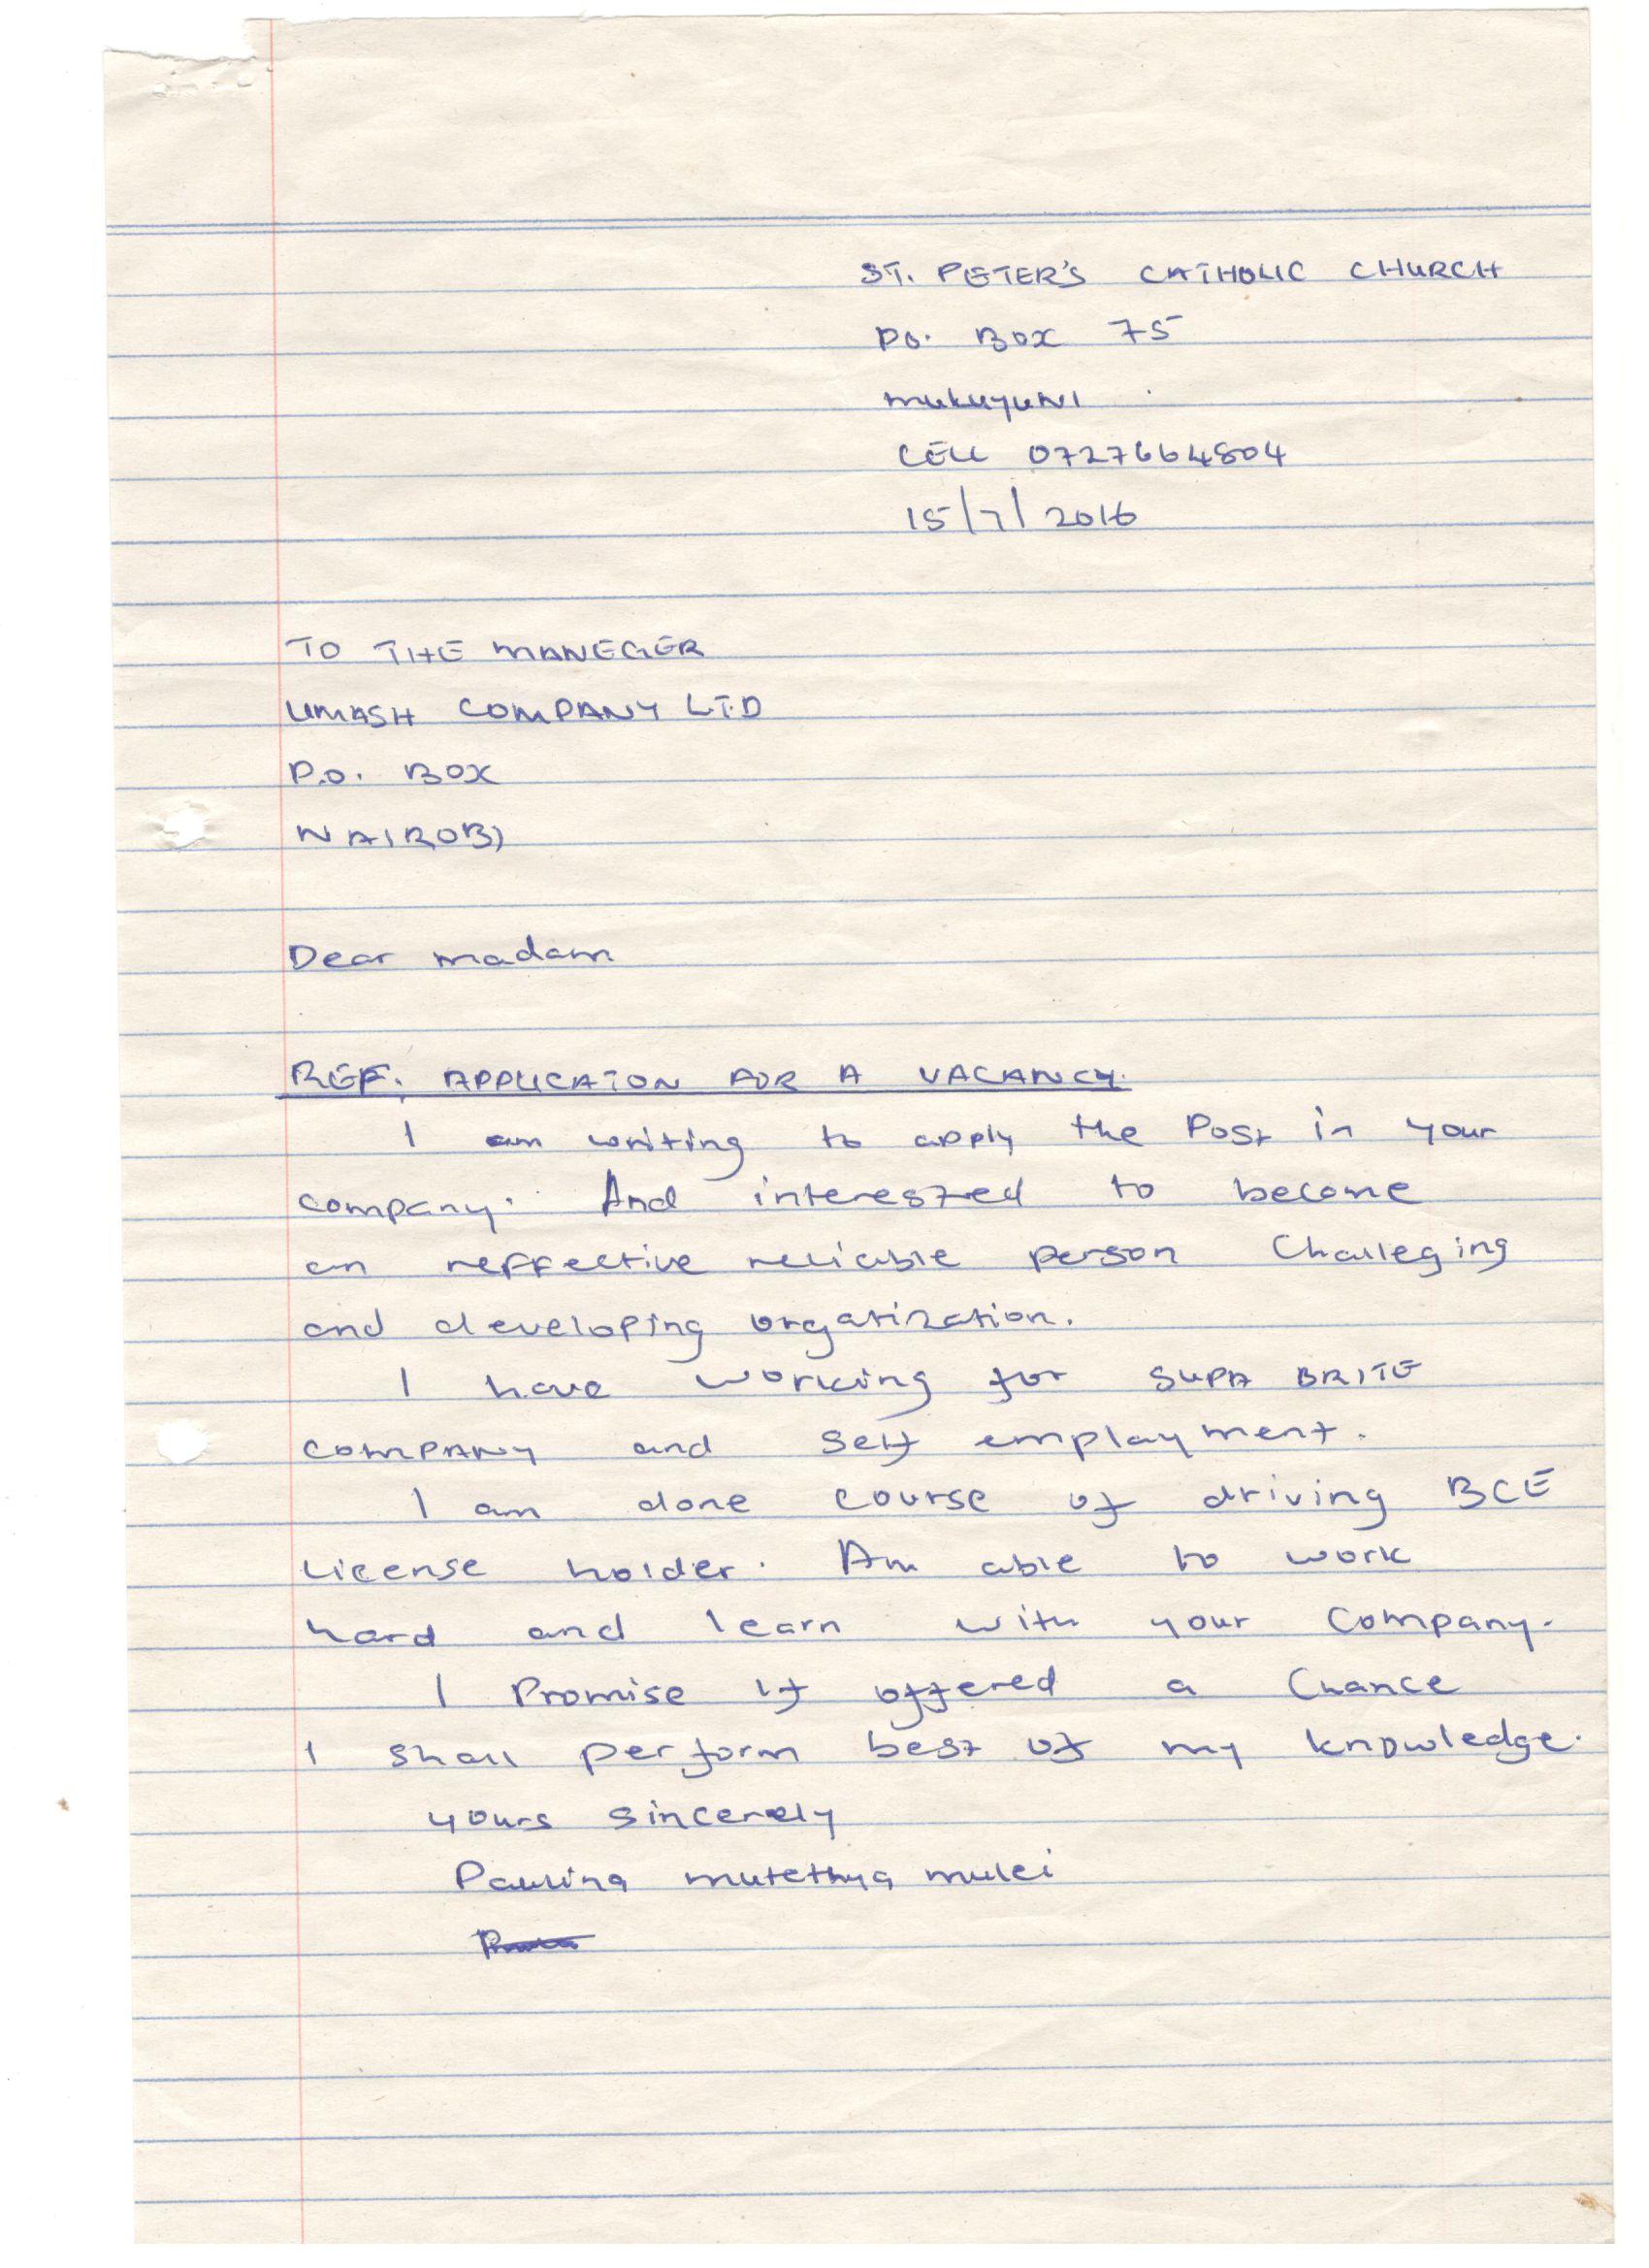 ST. PETER'S CATHOLIC CHURCH
P.O. BOX 75
MUKUYUNI
CELL 0727664804
15/7/2016
TO THE MANEGER
UMASH COMPANY LTD
P.O. BOX
NAIROBI
Dear madam
REF: APPLICATON FOR A VACANCY.
I am writing to apply the Post in your
company. And interested to become
an reffective reliable person Challeging
and developing orgatization.
I have working for SUPA BRITE
COMPANY and Self employment.
I am done course of driving BCE
License holder. Am able to work
hard and learn with your Company.
I Promise if offered a Chance
I shall perform best of my knowledge.
yours sincerely
Paulina mutethya mulei